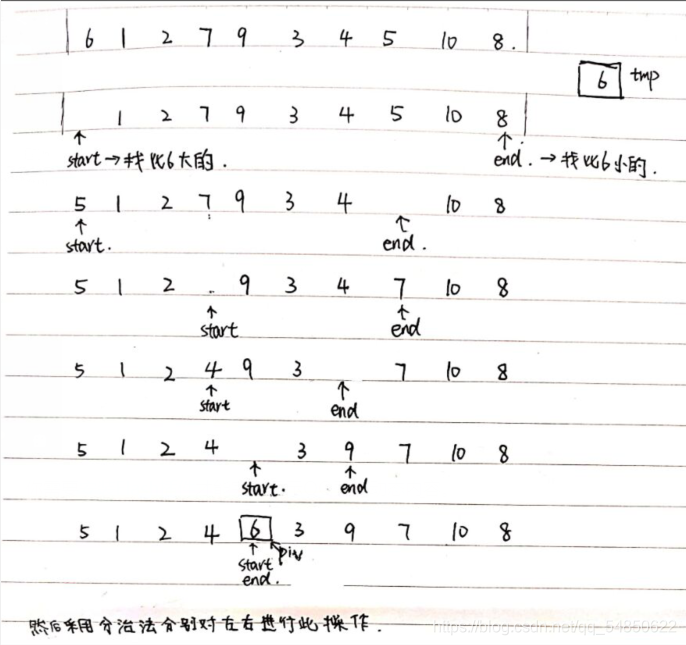 6 1 2 7 9 3 4 5 10 8.
6 tmp
1 2 7 9 3 4 5 10 8
start → 找比6大的.
end. → 找比6小的.
5 1 2 7 9 3 4 10 8
start. end.
5 1 2 9 3 4 7 10 8
start end
5 1 2 4 9 3 7 10 8
start end
5 1 2 4 3 9 7 10 8
start. end
5 1 2 4 6 3 9 7 10 8
piv
start
end.
然后采用分治法分别对左右进行此操作.
https://blog.csdn.net/qq_54850622